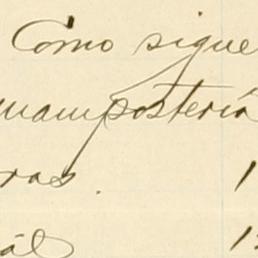 Como sigue
mampostería
ras. 1
ál 1